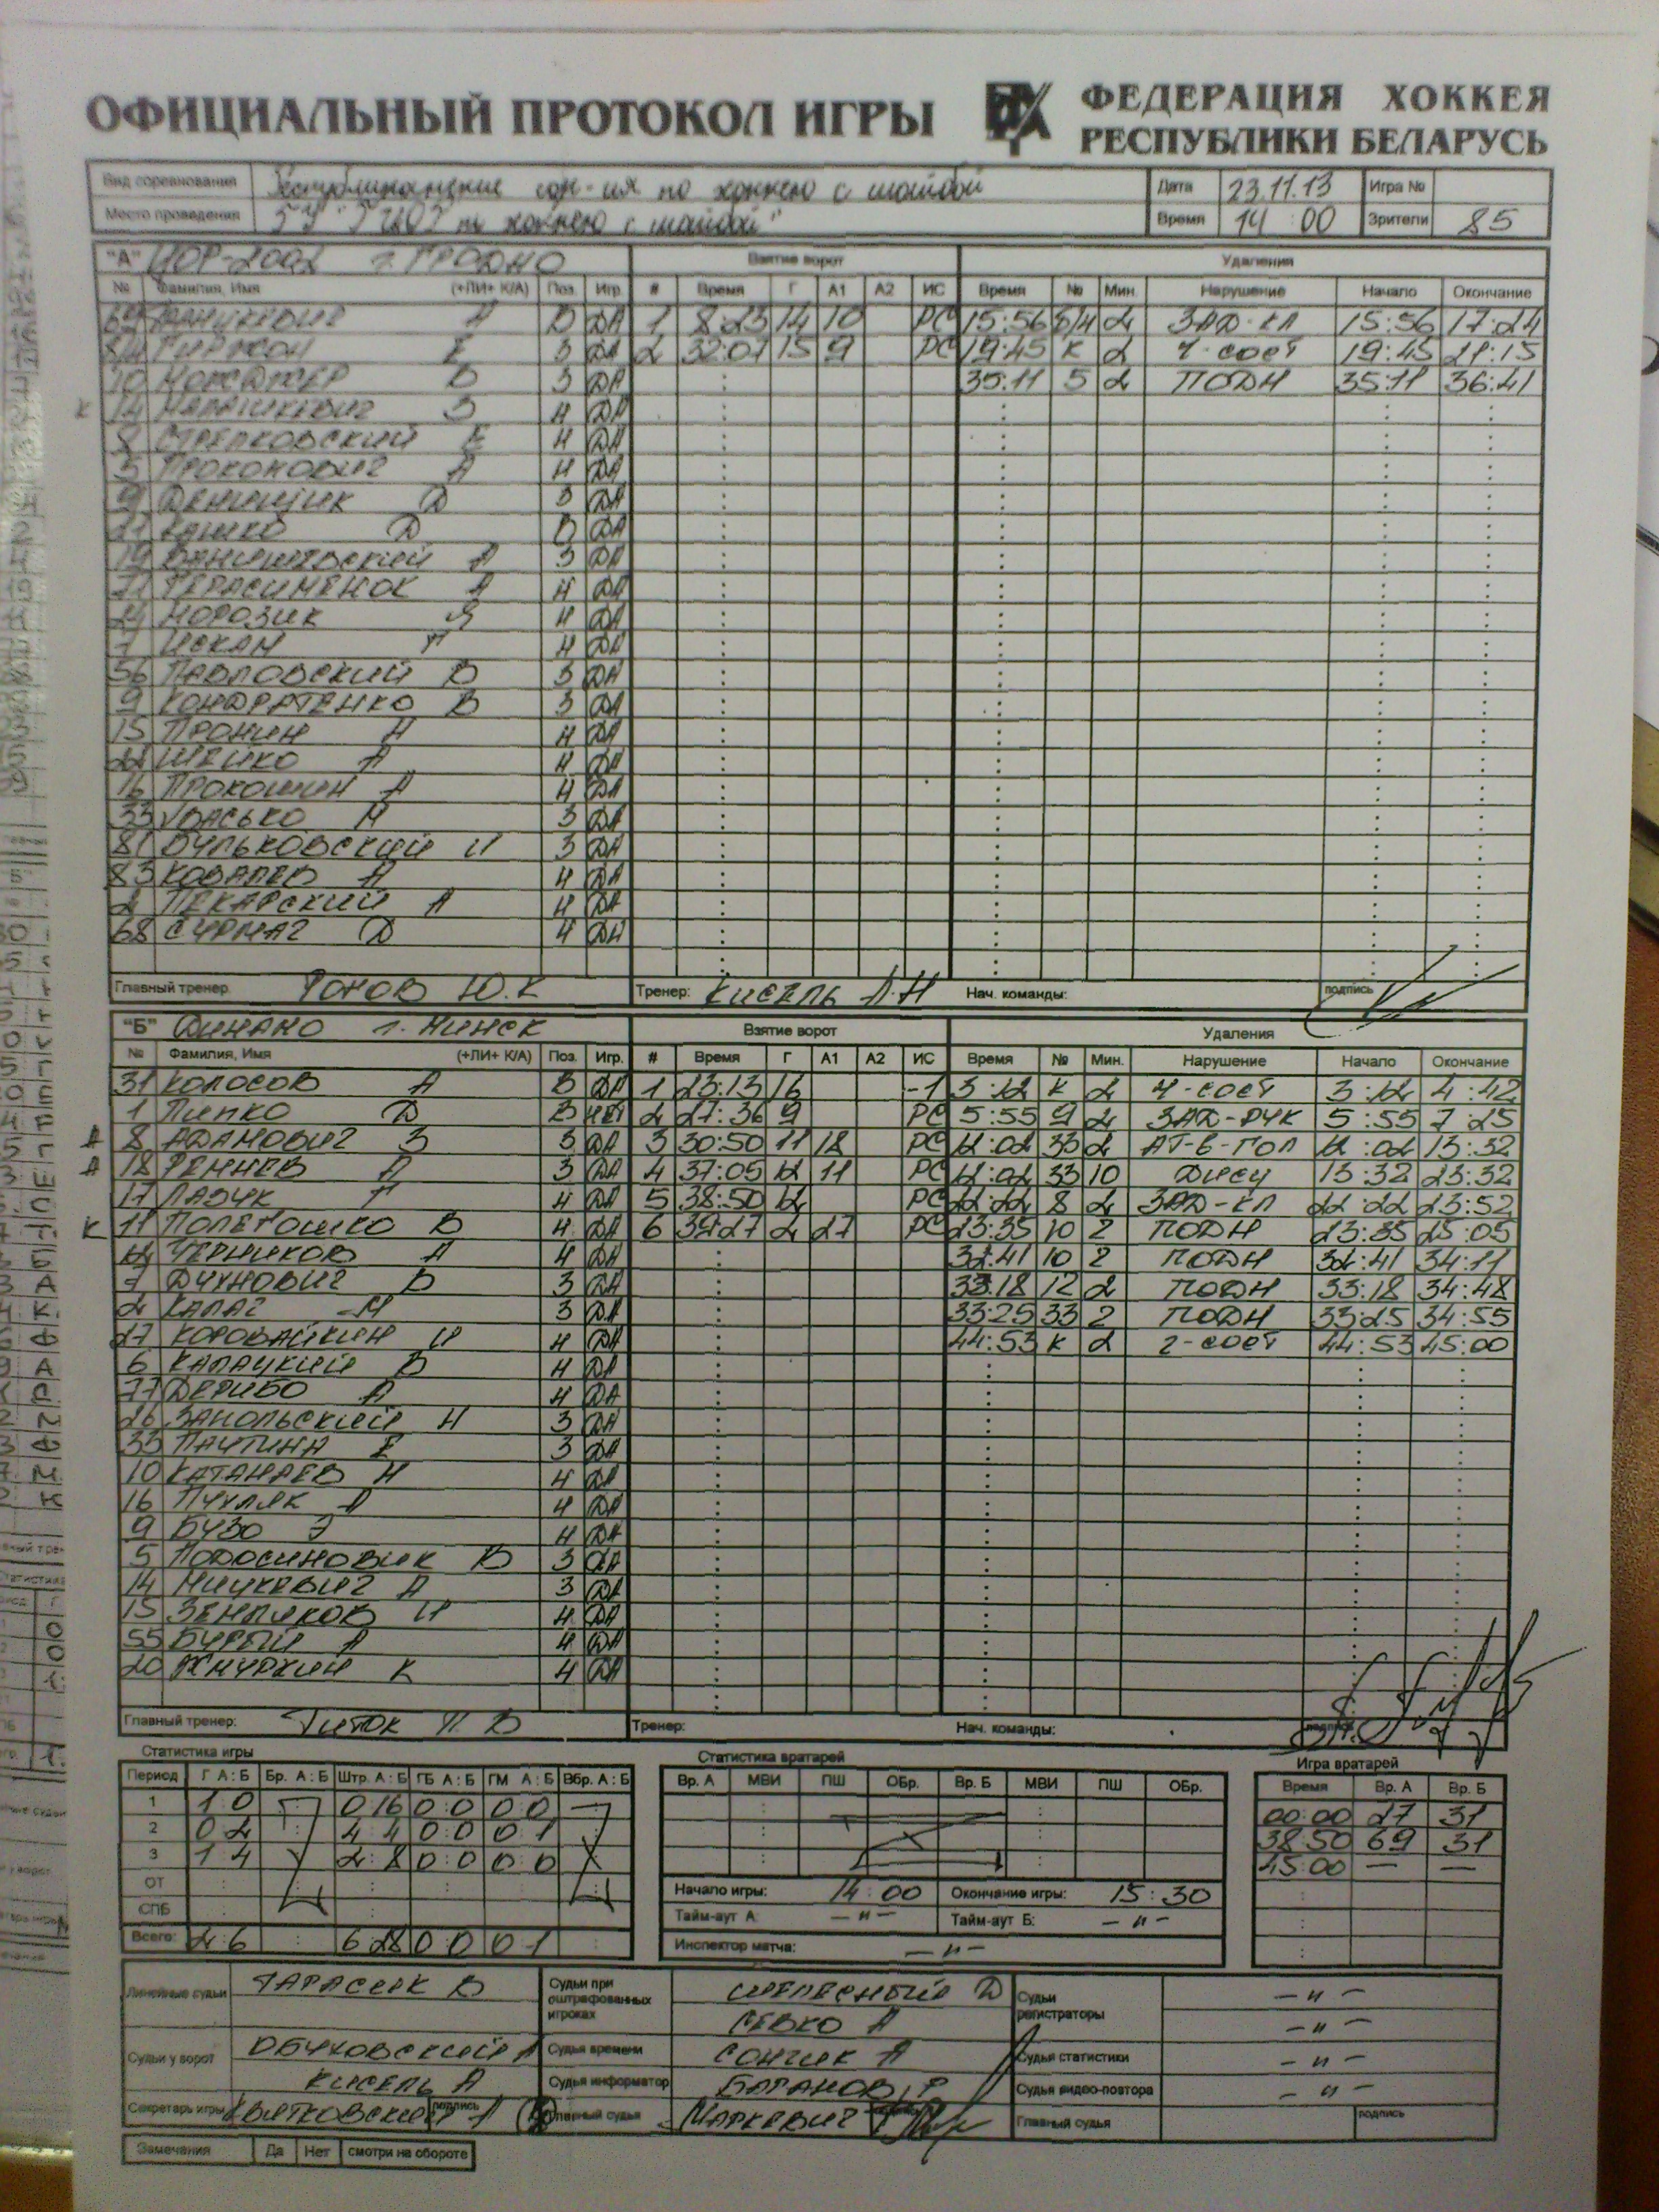 ОФИЦИАЛЬНЫЙ ПРОТОКОЛ ИГРЫ ФЕДЕРАЦИЯ ХОККЕЯ
РЕСПУБЛИКИ БЕЛАРУСЬ
Вид соревнования Республиканские сор-ия по хоккею с шайбой Дата 23.11.13 Игра №
Место проведения по хоккею с шайбой" Время 14:00 Зрители 85
"А" г. ГРОДНО Взятие ворот Удаления
№ Фамилия, Имя (+ЛИ+ К/А) Поз. Игр. # Время Г А1 А2 ИС Время № Мин. Нарушение Начало Окончание
69 А В ДА 1 8:23 14 10 РС 15:56 84 2 ЗАД-КЛ 15:56 17:24
84 Е З ДА 2 32:07 15 9 РС 19:45 К 2 Ч-СОСТ 19:45 21:15
10 В З ДА 35:11 5 2 ПОДН 35:11 36:41
К 14 З Н ДА
8 СТРЕЛКОВСКИЙ Е Н ДА
5 ПРОКОПОВИЧ А Н ДА
9 ДЕНИЩИК Д З ДА
21 Д В ДА
19 А З ДА
71 ГЕРАСИМЕНОК А Н ДА
24 МОРОЗИК Я Н ДА
7 ИСКАН П Н ДА
56 ПАВЛОВСКИЙ В З ДА
9 КОНДРАТЕНКО В З ДА
15 ПРОНИН Н Н ДА
22 ШЕЙКО А Н ДА
16 ПРОКОШИН А Н ДА
33 М З ДА
81 БУЛЬКОВСКИЙ И З ДА
83 КОВАЛЕВ А Н ДА
2 ПЕКАРСКИЙ А Н ДА
68 СУРМАЧ Д Н ДА
Главный тренер Ю.К Тренер: КИСЕЛЬ А.Н Нач. команды: подпись
"Б" ДИНАМО г. МИНСК Взятие ворот Удаления
№ Фамилия, Имя (+ЛИ+ К/А) Поз. Игр. # Время Г А1 А2 ИС Время № Мин. Нарушение Начало Окончание
31 КОЛОСОВ А В ДА 1 23:13 16 -1 3:12 К 2 Ч-СОСТ 3:12 4:42
1 ЛИПКО Д В НЕТ 2 27:36 9 РС 5:55 9 2 ЗАД-РУК 5:55 7:25
А 8 АДАМОВИЧ З З ДА 3 30:50 11 18 РС 12:02 33 2 АТ-В-ГОЛ 12:02 13:32
А 18 РЕМНЕВ А З ДА 4 37:05 12 11 РС 12:02 33 10 ДИСЦ 13:32 23:32
17 ЛАЗУК Г Н ДА 5 38:50 12 РС 22:22 8 2 ЗАД-КЛ 22:22 23:52
К 11 ПОЛЕГОШКО В Н ДА 6 39:27 2 27 РС 23:35 10 2 ПОДН 23:35 25:05
12 ЧЕРНИКОВ А Н ДА 32:41 10 2 ПОДН 32:41 34:11
7 ДУХНОВИЧ В З ДА 33:18 12 2 ПОДН 33:18 34:48
2 КАЛАЧ М З ДА 33:25 33 2 ПОДН 33:25 34:55
27 КОРОВАЙКИН И Н ДА 44:53 К 2 Ч-СОСТ 44:53 45:00
6 КАПАЦКИЙ В Н ДА
77 ДЕРИБО А Н ДА
26 ЗАПОЛЬСКИЙ Н З ДА
33 ПАУТИНА Е З ДА
10 КАТАНАЕВ Н Н ДА
16 ПУХЛЯК А Н ДА
9 БУЗО Э Н ДА
5 ПОДОСИНОВИК В З ДА
14 МИЦКЕВИЧ А З ДА
15 ЗЕМЛЯКОВ И Н ДА
55 БУРЫЙ А Н ДА
20 ЖМУРКИН К Н ДА
Главный тренер: ТИТОК П В Тренер: Нач. команды: подпись
Статистика игры Статистика вратарей Игра вратарей
Период Г А:Б Бр. А:Б Штр. А:Б ГБ А:Б ГМ А:Б Вбр. А:Б Вр. А МВИ ПШ ОБр. Вр. Б МВИ ПШ ОБр. Время Вр. А Вр. Б
1 1 0 0 16 0:0 0:0 00:00 27 31
2 0 2 4 4 0:0 0:1 38:50 69 31
3 1 4 2:8 0:0 0:0 45:00 — —
ОТ Начало игры: 14:00 Окончание игры: 15:30
СПБ Тайм-аут А: — " — Тайм-аут Б: — " —
Всего: 2 6 6 28 0 0 0 1 Инспектор матча: — " —
Линейные судьи ТАРАСЮК В Судьи при оштрафованных игроках Д Судьи регистраторы — " —
СЕВКО А — " —
Судьи у ворот ОБУХОВСКИЙ А Судья времени СОНЧИК А Судья статистики — " —
КИСЕЛЬ А Судья информатор БАРАНОВ Р Судья видео-повтора — " —
Секретарь игры КВЯТКОВСКИЙ А подпись Главный судья МАРКЕВИЧ Г Главный судья подпись
Замечания Да Нет смотри на обороте